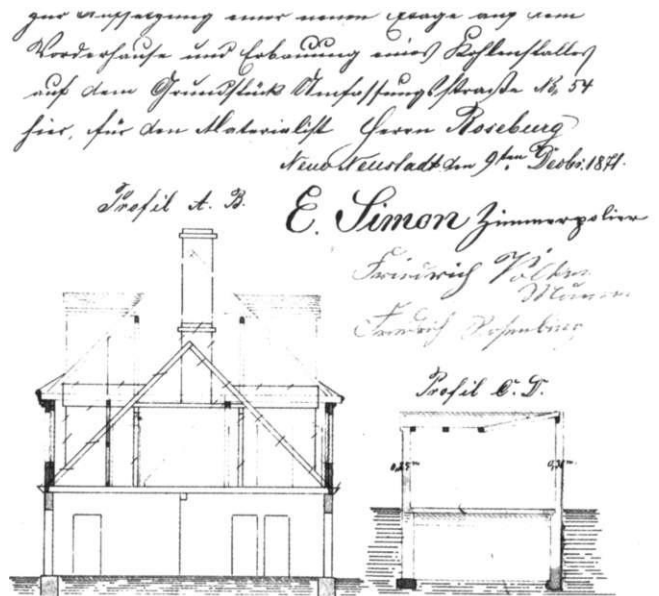 zur Aufsetzung einer neuen Etage auf dem
Vorderhause und Erbauung eines Kohlenstalles
auf dem Grundstück Umfassungsstraße No. 54
hier, für den Materialist Herrn Roseburg
Neue Neustadt den 9ten Decbr. 1871.
Profil A. B.
E. Simon Zimmerpolier
Friedrich
Friedrich
Profil C. D.
0,25m